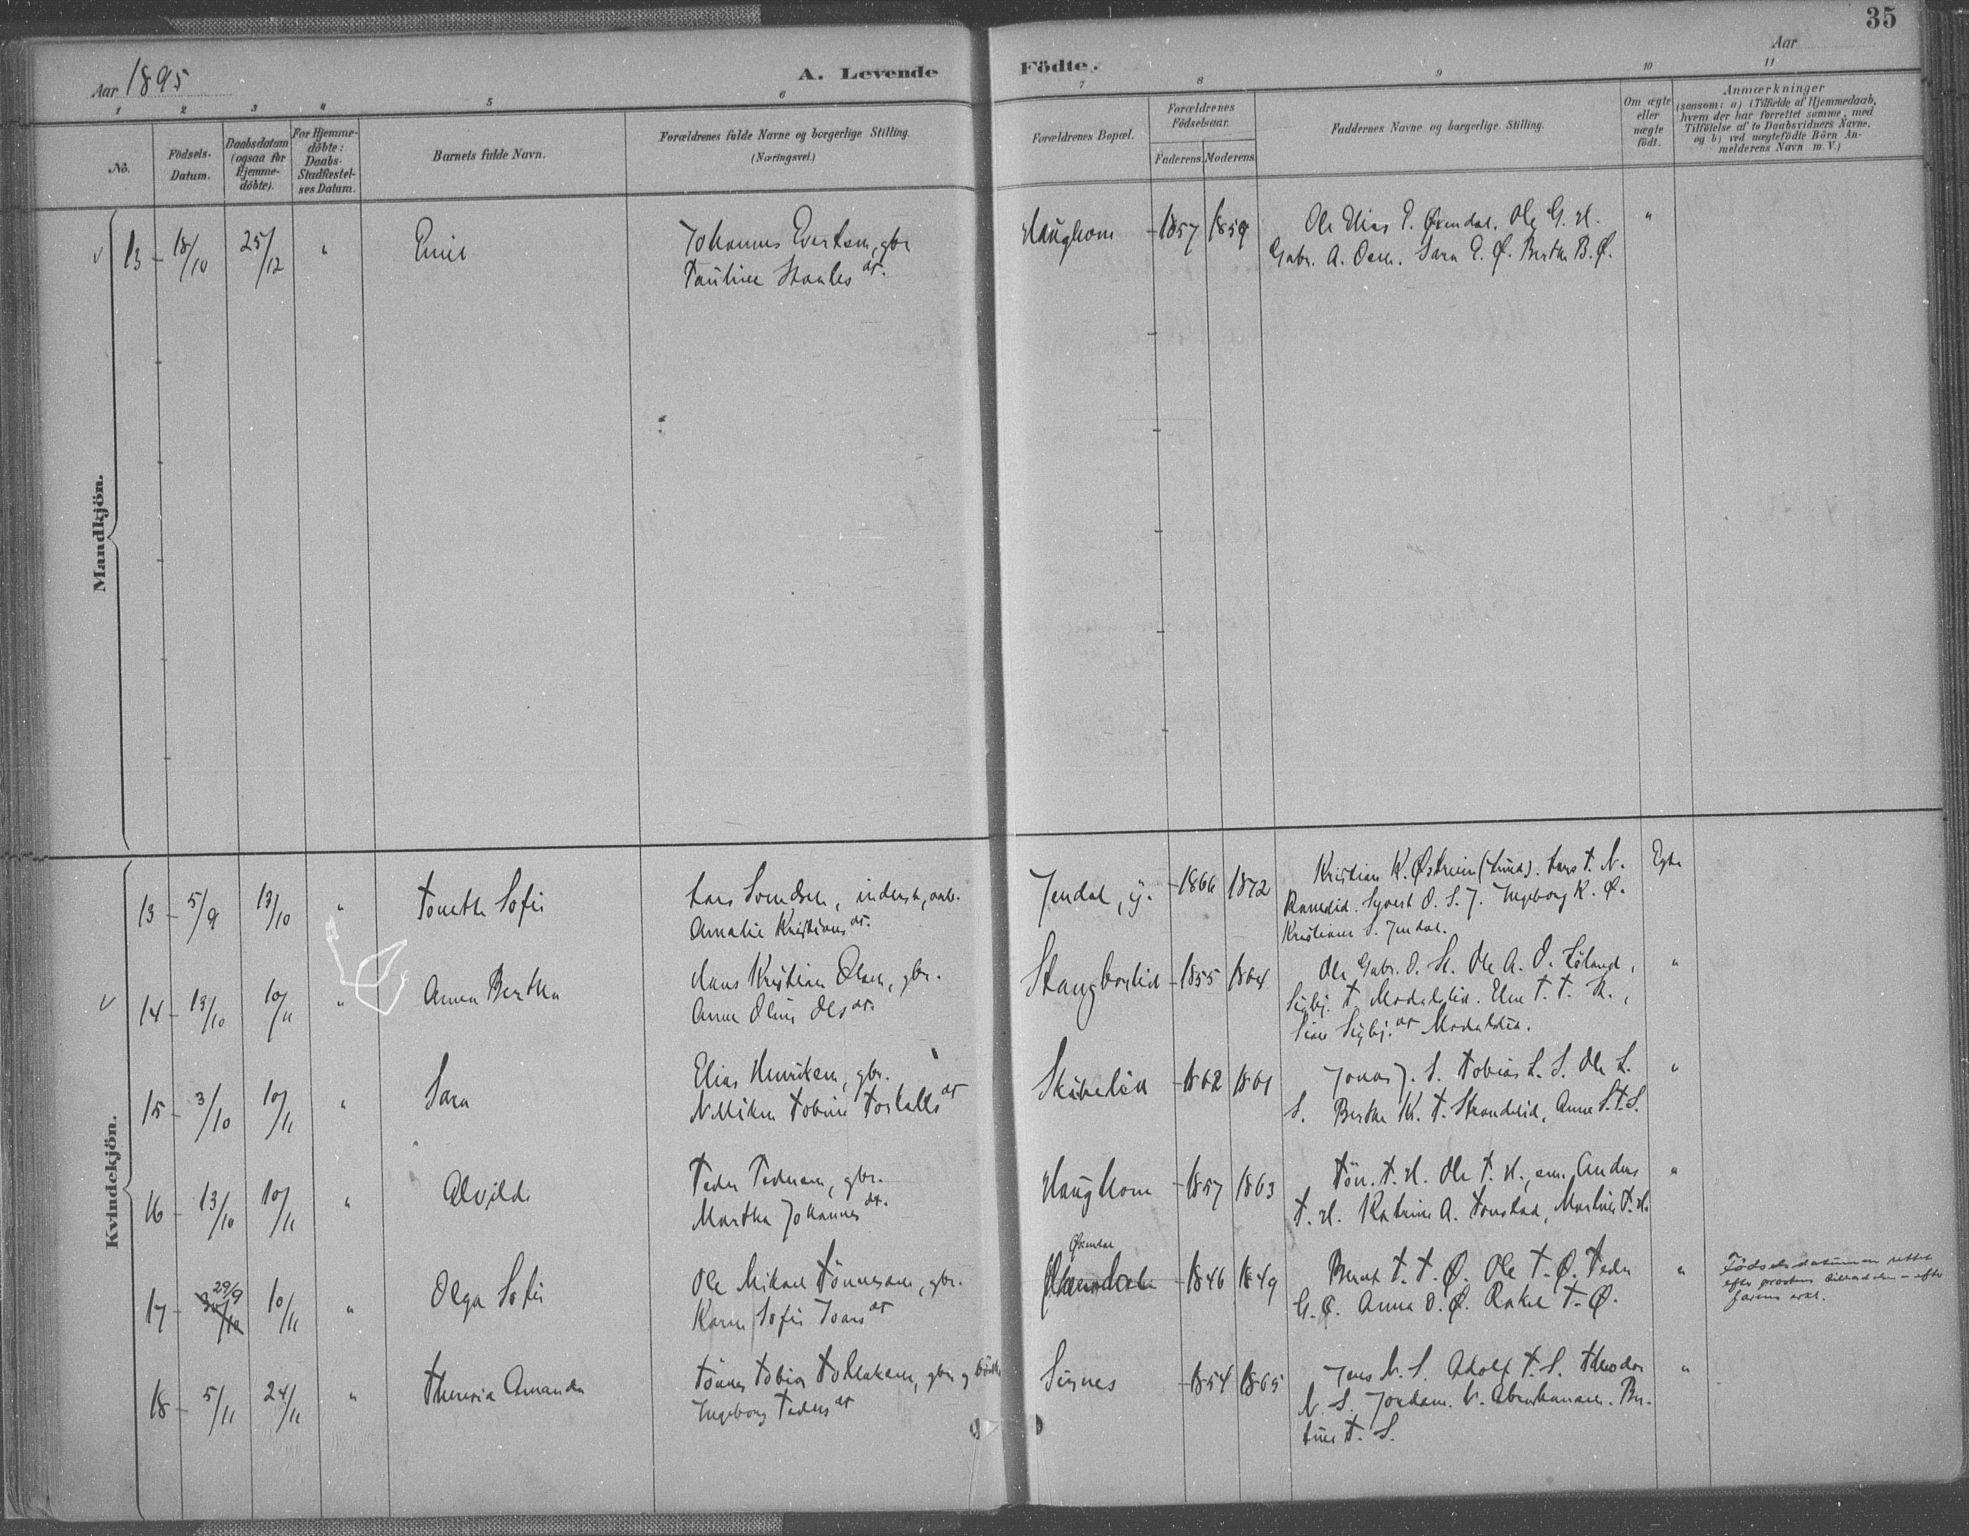 35
Aar 1895
A. Levende Födte.
Aar
1 2 3 4 5 6 7 8 9 10 11
No.
Födsels-
Datum.
Daabsdatum
(ogsaa for
Hjemme-
döbte).
For Hjemme-
döbte:
Daabs-
Stadfæstel-
ses Datum.
Barnets fulde Navn.
Forældrenes fulde Navne og borgerlige Stilling.
(Næringsvei.)
Forældrenes Bopæl.
Forældrenes
Födselsaar.
Faderens. Moderens.
Faddernes Navne og borgerlige Stilling.
Om ægte
eller
uægte
födt.
Anmærkninger
(saasom: a) i Tilfælde af Hjemmedaab,
hvem der har forrettet samme, med
Tilföielse af to Daabsvidners Navne,
og b) ved uægtefödte Börn An-
melderens Navn m. V.)
Mandkjön.
13 18/10 25/12 " Emil
Johannes Evertsen, gbr
Pauline Stanles dr.
Haughom 1857 1859
Ole Elias P. Øxendal. Ole G. H.
Gabr. A. Osen. Sara E. Ø. Berthe B. Ø.
"
Kvindekjön.
13 5/9 13/10 " Tonette Sofie
Lars Svendsen, inderst,
Amalie Kristians dr.
Jendal, y. 1866 1872
Kristian K. Østreim (Lund). Lars T. N.
Ramslid. Syvert O. S. J. Ingeborg K. Ø.
Kristiane S. Jendal.
Egte
14 13/10 10/11 " Anna Bertha
Hans Kristian Olsen, gbr.
Anne Oline Ols dr.
Stangborlid 1855 1864
Ole Gabr. O. St. Ole A. O.
Sigbj. T. Modalslid. Else T. T. R.,
Sine Sigbj. dr Modalslid.
"
15 3/10 10/11 " Sara
Elias Henriksen, gbr.
Tobine Torkells dr
Skibelid 1862 1861
Jonas J. S. Tobias L. S. Ole L.
S. Berthe K. T. Strandelid, Anne S. T. S.
"
16 13/10 10/11 " Alvilde
Peder Pedersen, gbr.
Martha Johannes dr.
Haughom 1857 1863
Tön. T. H. Ole T. H., em. Anders
T. H. Katrine A. Tonstad, Martine T. H.
"
17 29/9 30/10 10/11 " Olga Sofie
Ole Mikael Tönnesen, gbr.
Karen Sofie Joans dr
Øxendal
1846 1849
Bernt T. T. Ø. Ole T. Ø. Peder
G. Ø. Anna O. Ø. Rakel T. Ø.
"
Födselsdatumen rettet
efter provstens tilladelse – efter
farens
18 5/11 24/11 " Theresia Amanda
Tönnes Tobias Tollaksen, gbr og
Ingeborg Peders dr
Sirnes 1854 1865
Jens N. S. Adolf T. S. Theodor
N. S. Jordam. V. Abrahamsen. Ber-
tine T. S.
"